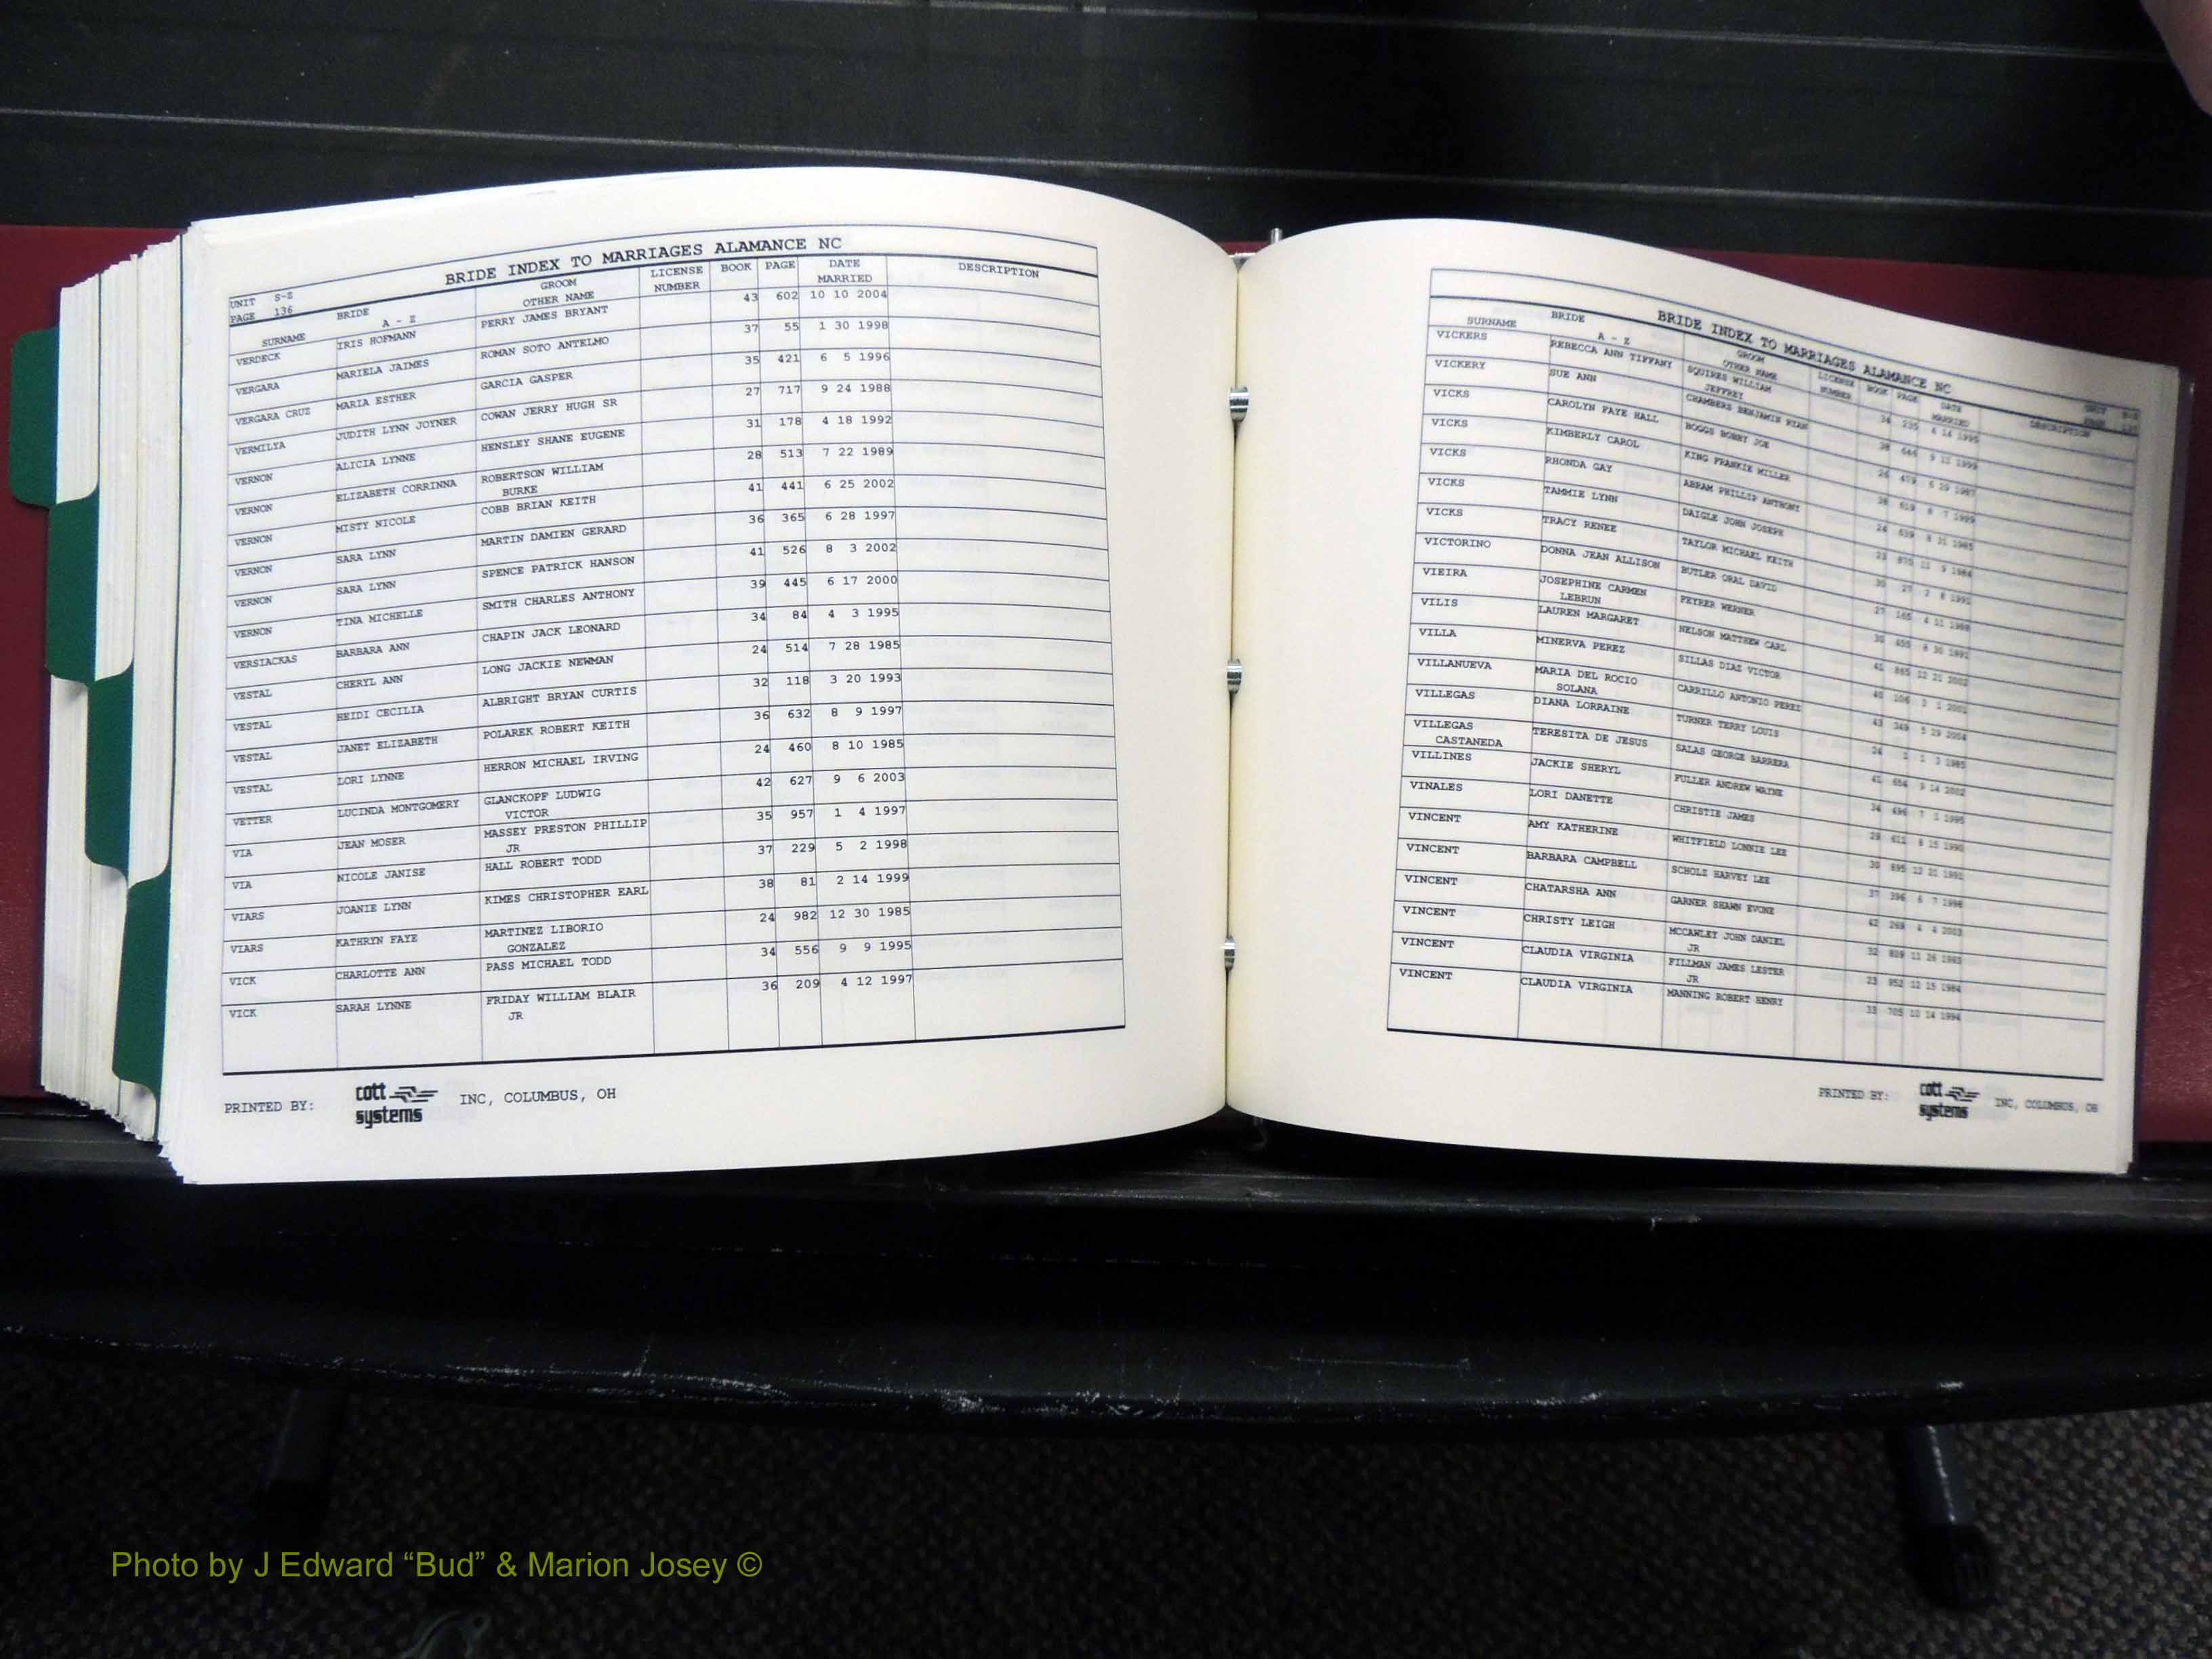 BRIDE INDEX TO MARRIAGES ALAMANCE NC
UNIT S-Z
PAGE 136
SURNAME BRIDE A - Z GROOM OTHER NAME LICENSE NUMBER BOOK PAGE DATE MARRIED DESCRIPTION
VERDECK IRIS HOFMANN PERRY JAMES BRYANT 43 602 10 10 2004
VERGARA MARIELA JAIMES ROMAN SOTO ANTELMO 37 55 1 30 1998
VERGARA CRUZ MARIA ESTHER GARCIA GASPER 35 421 6 5 1996
VERMILYA JUDITH LYNN JOYNER COWAN JERRY HUGH SR 27 717 9 24 1988
VERNON ALICIA LYNNE HENSLEY SHANE EUGENE 31 178 4 18 1992
VERNON ELIZABETH CORRINNA ROBERTSON WILLIAM 28 513 7 22 1989
BURKE
VERNON MISTY NICOLE COBB BRIAN KEITH 41 441 6 25 2002
VERNON SARA LYNN MARTIN DAMIEN GERARD 36 365 6 28 1997
VERNON SARA LYNN SPENCE PATRICK HANSON 41 526 8 3 2002
VERNON TINA MICHELLE SMITH CHARLES ANTHONY 39 445 6 17 2000
VERSIACKAS BARBARA ANN CHAPIN JACK LEONARD 34 84 4 3 1995
VESTAL CHERYL ANN LONG JACKIE NEWMAN 24 514 7 28 1985
VESTAL HEIDI CECILIA ALBRIGHT BRYAN CURTIS 32 118 3 20 1993
VESTAL JANET ELIZABETH POLAREK ROBERT KEITH 36 632 8 9 1997
VESTAL LORI LYNNE HERRON MICHAEL IRVING 24 460 8 10 1985
VETTER LUCINDA MONTGOMERY GLANCKOPF LUDWIG 42 627 9 6 2003
VICTOR
VIA JEAN MOSER MASSEY PRESTON PHILLIP 35 957 1 4 1997
JR
VIA NICOLE JANISE HALL ROBERT TODD 37 229 5 2 1998
VIARS JOANIE LYNN KIMES CHRISTOPHER EARL 38 81 2 14 1999
VIARS KATHRYN FAYE MARTINEZ LIBORIO 24 982 12 30 1985
GONZALEZ
VICK CHARLOTTE ANN PASS MICHAEL TODD 34 556 9 9 1995
VICK SARAH LYNNE FRIDAY WILLIAM BLAIR 36 209 4 12 1997
JR
PRINTED BY: cott systems INC, COLUMBUS, OH
BRIDE INDEX TO MARRIAGES ALAMANCE NC
SURNAME BRIDE A - Z GROOM OTHER NAME LICENSE NUMBER BOOK PAGE DATE MARRIED DESCRIPTION
VICKERS REBECCA ANN TIFFANY SQUIRES WILLIAM
JEFFREY
VICKERY SUE ANN CHAMBERS BENJAMIN RYAN
VICKS CAROLYN FAYE HALL BOGGS BOBBY JOE
VICKS KIMBERLY CAROL KING FRANKIE MILLER
VICKS RHONDA GAY ABRAM PHILLIP ANTHONY
VICKS TAMMIE LYNN DAIGLE JOHN JOSEPH
VICKS TRACY RENEE TAYLOR MICHAEL KEITH
VICTORINO DONNA JEAN ALLISON BUTLER ORAL DAVID
VIEIRA JOSEPHINE CARMEN PEYRER WERNER
LEBRUN
VILIS LAUREN MARGARET NELSON MATTHEW CARL
VILLA MINERVA PEREZ SILLAS DIAZ VICTOR
VILLANUEVA MARIA DEL ROCIO CARRILLO ANTONIO PEREZ
SOLANA
VILLEGAS DIANA LORRAINE TURNER TERRY LOUIS
VILLEGAS TERESITA DE JESUS SALAS GEORGE BARRERA
CASTANEDA
VILLINES JACKIE SHERYL FULLER ANDREW WAYNE
VINALES LORI DANETTE CHRISTIE JAMES
VINCENT AMY KATHERINE WHITFIELD LONNIE LEE
VINCENT BARBARA CAMPBELL SCHOLZ HARVEY LEE
VINCENT CHATARSHA ANN GARNER SHAWN EVONE
VINCENT CHRISTY LEIGH MCCAWLEY JOHN DANIEL
JR
VINCENT CLAUDIA VIRGINIA FILLMAN JAMES LESTER
JR
VINCENT CLAUDIA VIRGINIA MANNING ROBERT HENRY 33 705 10 14 1994
PRINTED BY: cott systems INC, COLUMBUS, OH
Photo by J Edward “Bud” & Marion Josey ©